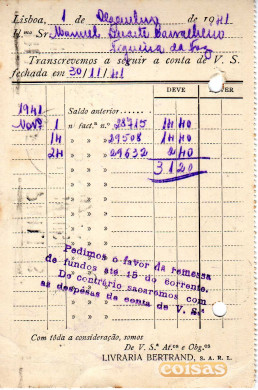 Lisboa, 1 de Dezembro de 1941
Il.mo Sr. Manuel Duarte
Figueira da Foz
Transcrevemos a seguir a conta de V. S.
fechada em 30/11/41
DEVE HAVER
1941 Saldo anterior
Nov.º 1 n/ fact.ª n.º 28715 14 40
14 » » » 29508 14 40
24 » » » 29632 2 40
31 20
Pedimos o favor da remessa
de fundos até 15 do corrente.
Do contrário sacaremos com
as despêsas de conta de V. S.ª
Com tôda a consideração, somos
De V. S.ª At.os e Obg.os
LIVRARIA BERTRAND, S. A. R. L.
coisas